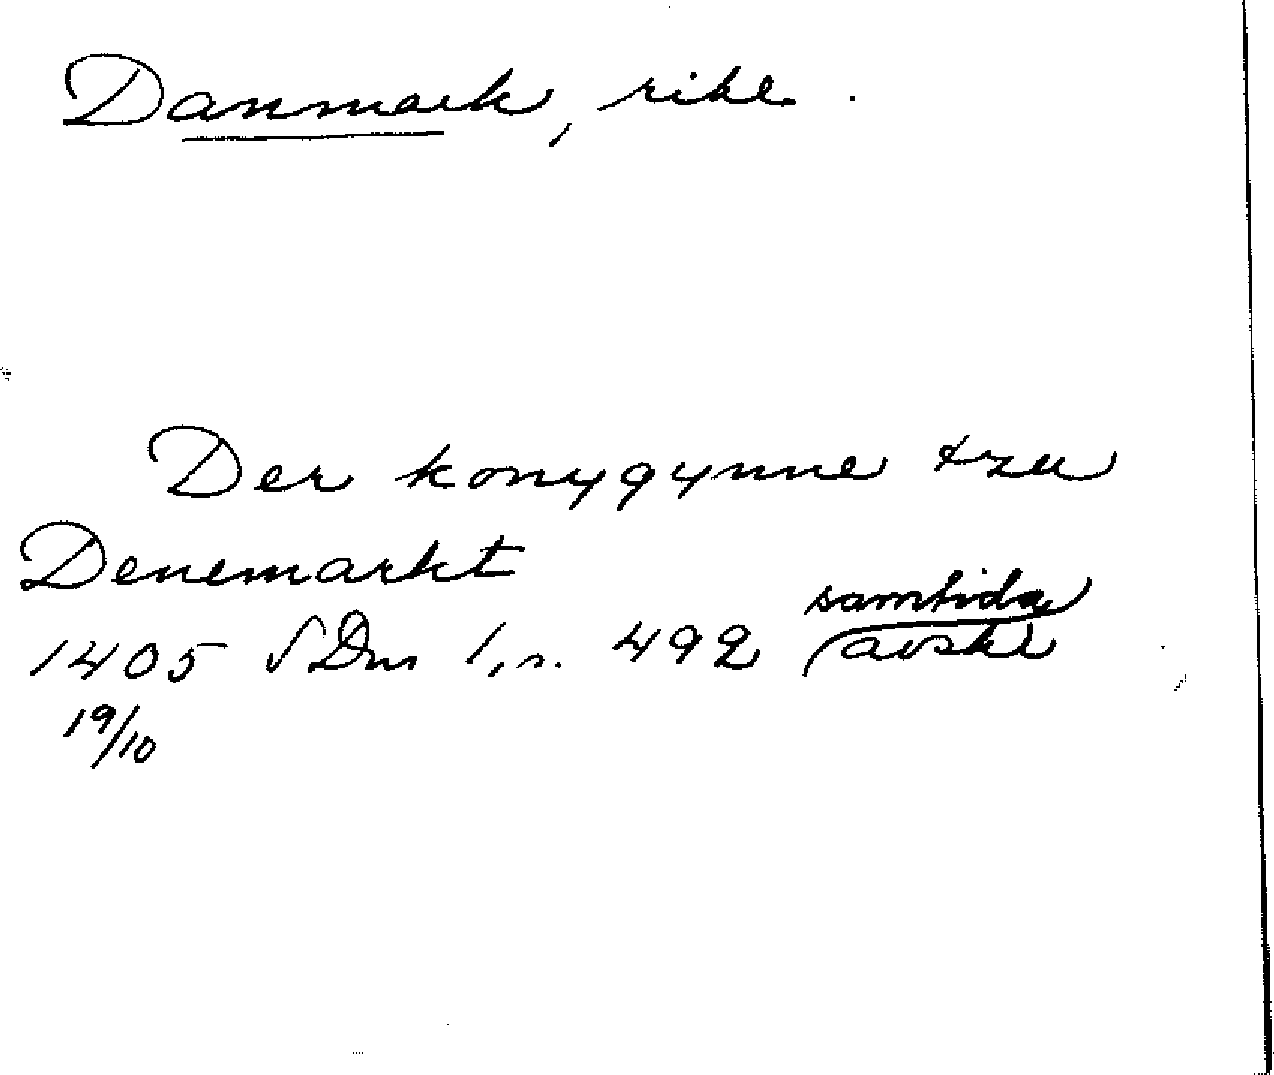 Danmark, rike.
Der konygynne tzu
Denemarkt
samtida
1405 SDns 1, s. 492 avskr
19/10